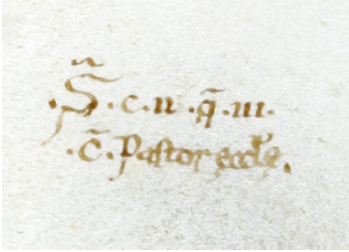 .S̃.c.ii.q̃.iii.
.c̃.Pastor eccle͂.